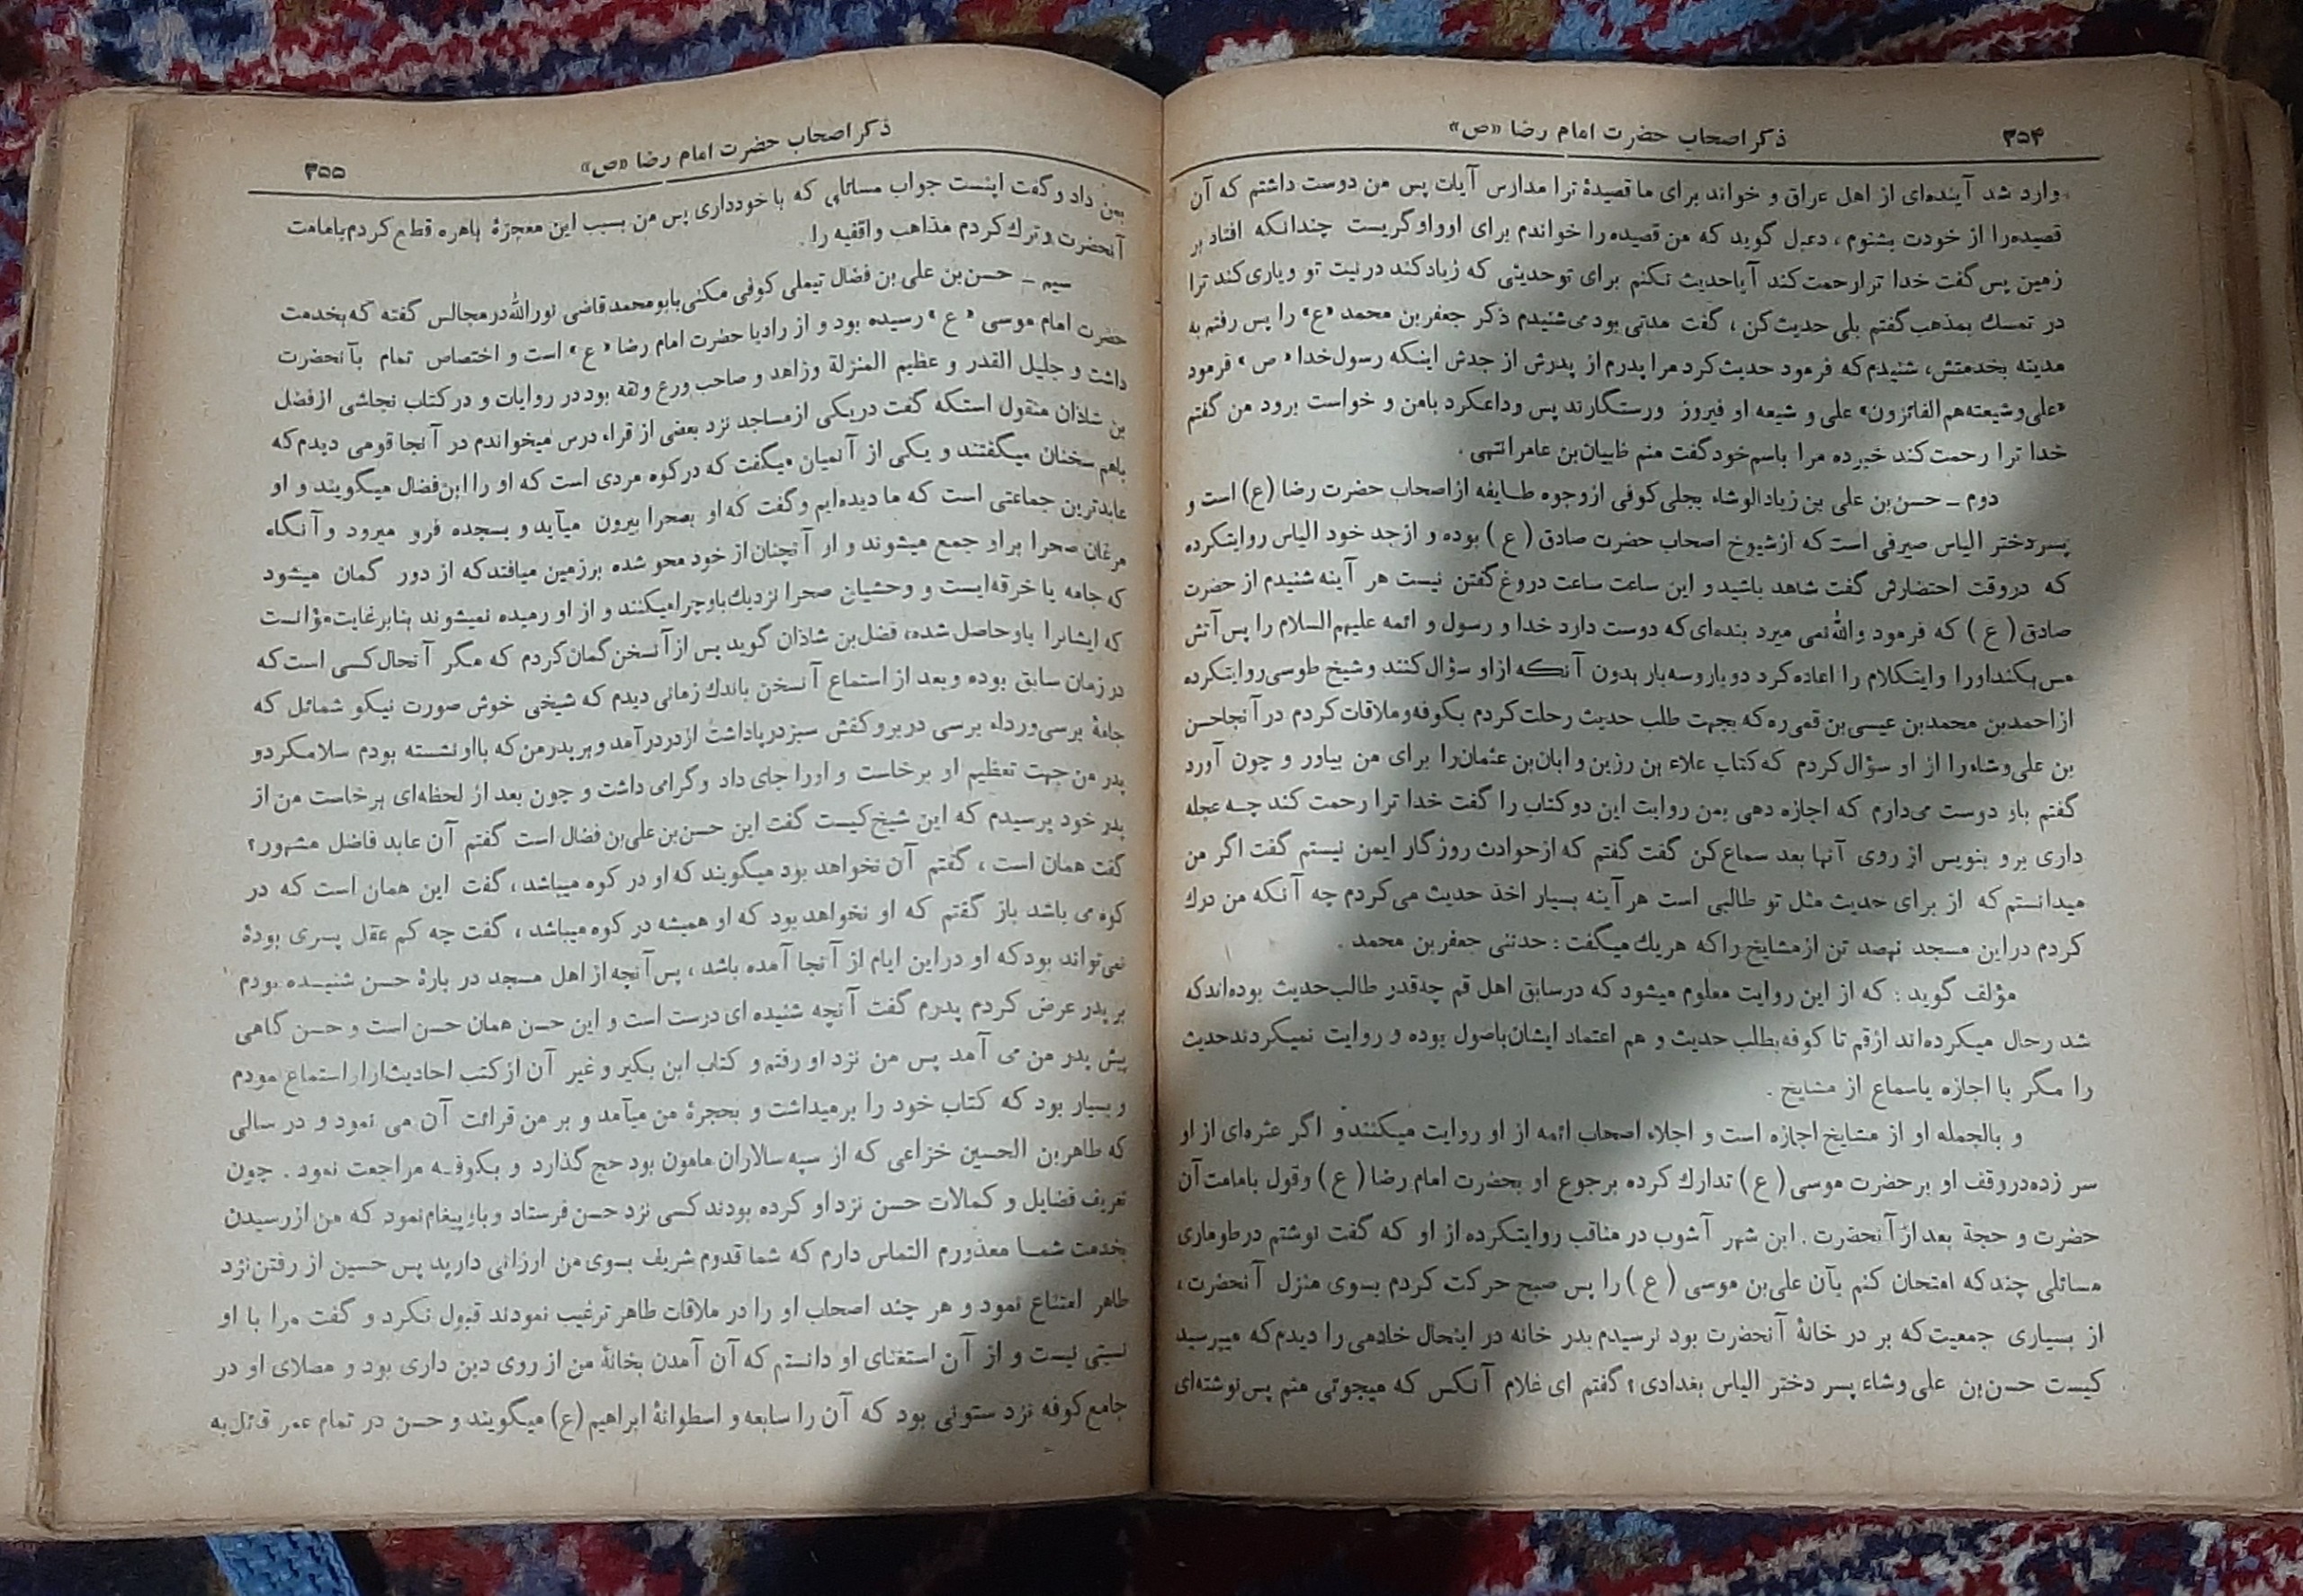 ۳۵۴
ذکر اصحاب حضرت امام رضا «ص»
وارد شد آینده‌ای از اهل عراق و خواند برای ما قصیدهٔ ترا مدارس آیات پس من دوست داشتم که آن
قصیده را از خودت بشنوم ، دعبل گوید که من قصیده را خواندم برای او و او گریست چندانکه افتاد بر
زمین پس گفت خدا ترا رحمت کند آیا حدیث نکنم برای تو حدیثی که زیاد کند در نیت تو و یاری کند ترا
در تمسك بمذهب گفتم بلی حدیث کن ، گفت مدتی بود می‌شنیدم ذکر جعفر بن محمد «ع» را پس رفتم به
مدینه بخدمتش، شنیدم که فرمود حدیث کرد مرا پدرم از پدرش از جدش اینکه رسول خدا «ص» فرمود
«علی و شیعته هم الفائزون» علی و شیعه او فیروز ورستگارند پس وداعکرد بامن و خواست برود من گفتم
خدا ترا رحمت کند خبر ده مرا باسم خود گفت منم ظبیان بن عامر انتهی .
دوم ـ حسن بن علی بن زیاد الوشاء بجلی کوفی از وجوه طـایفه از اصحاب حضرت رضا (ع) است و
پسر دختر الیاس صیرفی است که از شیوخ اصحاب حضرت صادق ( ع ) بوده و از جد خود الیاس روایتکرده
که در وقت احتضارش گفت شاهد باشید و این ساعت ساعت دروغ گفتن نیست هر آینه شنیدم از حضرت
صادق ( ع ) که فرمود والله نمی میرد بنده‌ای که دوست دارد خدا و رسول و ائمه علیهم السلام را پس آتش
مس بکند او را و اینکلام را اعاده کرد دوبار و سه بار بدون آنکه از او سؤال کنند و شیخ طوسی روایتکرده
از احمد بن محمد بن عیسی بن قمی ره که بجهت طلب حدیث رحلت کردم بکوفه و ملاقات کردم در آنجا حسن
بن علی وشاء را از او سؤال کردم که کتاب علاء بن رزین و ابان بن عثمان را برای من بیاور و چون آورد
گفتم باو دوست می‌دارم که اجازه دهی بمن روایت این دو کتاب را گفت خدا ترا رحمت کند چـه عجله
داری برو بنویس از روی آنها بعد سماع کن گفت گفتم که از حوادث روزگار ایمن نیستم گفت اگر من
میدانستم که از برای حدیث مثل تو طالبی است هر آینه بسیار اخذ حدیث می‌کردم چه آنکه من درك
کردم در این مسجد نهصد تن از مشایخ را که هر یك میگفت : حدثنی جعفر بن محمد .
مؤلف گوید : که از این روایت معلوم میشود که در سابق اهل قم چه‌قدر طالب حدیث بوده‌اند که
شد رحال میکرده‌اند از قم تا کوفه بطلب حدیث و هم اعتماد ایشان باصول بوده و روایت نمیکردند حدیث
را مگر با اجازه یاسماع از مشایخ .
و بالجمله او از مشایخ اجازه است و اجلاء اصحاب ائمه از او روایت میکنند و اگر عثره‌ای از او
سر زده در وقف او بر حضرت موسی ( ع ) تدارك کرده برجوع او بحضرت امام رضا ( ع ) و قول بامامت آن
حضرت و حجة بعد از آنحضرت . ابن شهر آشوب در مناقب روایتکرده از او که گفت نوشتم در طوماری
مسائلی چند که امتحان کنم بآن علی بن موسی ( ع ) را پس صبح حرکت کردم بسوی منزل آنحضرت ،
از بسیاری جمعیت که بر در خانهٔ آنحضرت بود نرسیدم بدر خانه در اینحال خادمی را دیدم که میپرسید
کیست حسن بن علی وشاء پسر دختر الیاس بغدادی ؟ گفتم ای غلام آنکس که میجوئی منم پس نوشته‌ای
ذکر اصحاب حضرت امام رضا «ص»
۳۵۵
بمن داد و گفت اینست جواب مسائلی که با خود داری پس من بسبب این معجزهٔ باهره قطع کردم بامامت
آنحضرت و ترك کردم مذاهب واقفیه را .
سیم ـ حسن بن علی بن فضال تیملی کوفی مکنی بابو محمد قاضی نورالله در مجالس گفته که بخدمت
حضرت امام موسی «ع» رسیده بود و از راویان حضرت امام رضا «ع» است و اختصاص تمام بآنحضرت
داشت و جلیل القدر و عظیم المنزلة وزاهد و صاحب ورع و ثقه بود در روایات و در کتاب نجاشی از فضل
بن شاذان منقول استکه گفت در یکی از مساجد نزد بعضی از قراء درس میخواندم در آنجا قومی دیدم که
باهم سخنان میگفتند و یکی از آنمیان میگفت که در کوه مردی است که او را ابن فضال میگویند و او
عابدترین جماعتی است که ما دیده‌ایم و گفت که او بصحرا بیرون میآید و بسجده فرو میرود و آنگاه
مرغان صحرا بر او جمع میشوند و او آنچنان از خود محو شده بر زمین میافتد که از دور گمان میشود
که جامه یا خرقه‌ایست و وحشیان صحرا نزدیك باو چرا میکنند و از او رمیده نمیشوند بنابر غایت مؤانست
که ایشانرا باو حاصل شده، فضل بن شاذان گوید پس از آنسخن گمان کردم که مگر آنحال کسی است که
در زمان سابق بوده و بعد از استماع آنسخن باندك زمانی دیدم که شیخی خوش صورت نیکو شمائل که
جامهٔ برسی و رداء برسی در بر و کفش سبز در پا داشت از در درآمد و بر پدر من که با او نشسته بودم سلامکرد و
پدر من جهت تعظیم او برخاست و او را جای داد و گرامی داشت و چون بعد از لحظه‌ای برخاست من از
پدر خود پرسیدم که این شیخ کیست گفت این حسن بن علی بن فضال است گفتم آن عابد فاضل مشهور؟
گفت همان است ، گفتم آن نخواهد بود میگویند که او در کوه میباشد ، گفت این همان است که در
کوه می باشد باز گفتم که او نخواهد بود که او همیشه در کوه میباشد ، گفت چه کم عقل پسری بودهٔ
نمی‌تواند بود که او در این ایام از آنجا آمده باشد ، پس آنچه از اهل مسجد در بارهٔ حسن شنیـده بودم
بر پدر عرض کردم پدرم گفت آنچه شنیده ای درست است و این حسن همان حسن است و حسن گاهی
پیش پدر من می آمد پس من نزد او رفتم و کتاب ابن بکیر و غیر آن از کتب احادیث از او استماع نمودم
و بسیار بود که کتاب خود را برمیداشت و بحجرهٔ من میآمد و بر من قرائت آن می نمود و در سالی
که طاهر بن الحسین خزاعی که از سپه سالاران مامون بود حج گذارد و بکوفـه مراجعت نمود . چون
تعریف فضایل و کمالات حسن نزد او کرده بودند کسی نزد حسن فرستاد و باو پیغام نمود که من از رسیدن
بخدمت شمـا معذورم التماس دارم که شما قدوم شریف بسوی من ارزانی دارید پس حسین از رفتن نزد
طاهر امتناع نمود و هر چند اصحاب او را در ملاقات طاهر ترغیب نمودند قبول نکرد و گفت مرا با او
نسبتی نیست و از آن استغنای او دانستم که آن آمدن بخانهٔ من از روی دین داری بود و مصلای او در
جامع کوفه نزد ستونی بود که آن را سابعه و اسطوانهٔ ابراهیم (ع) میگویند و حسن در تمام عمر قائل به